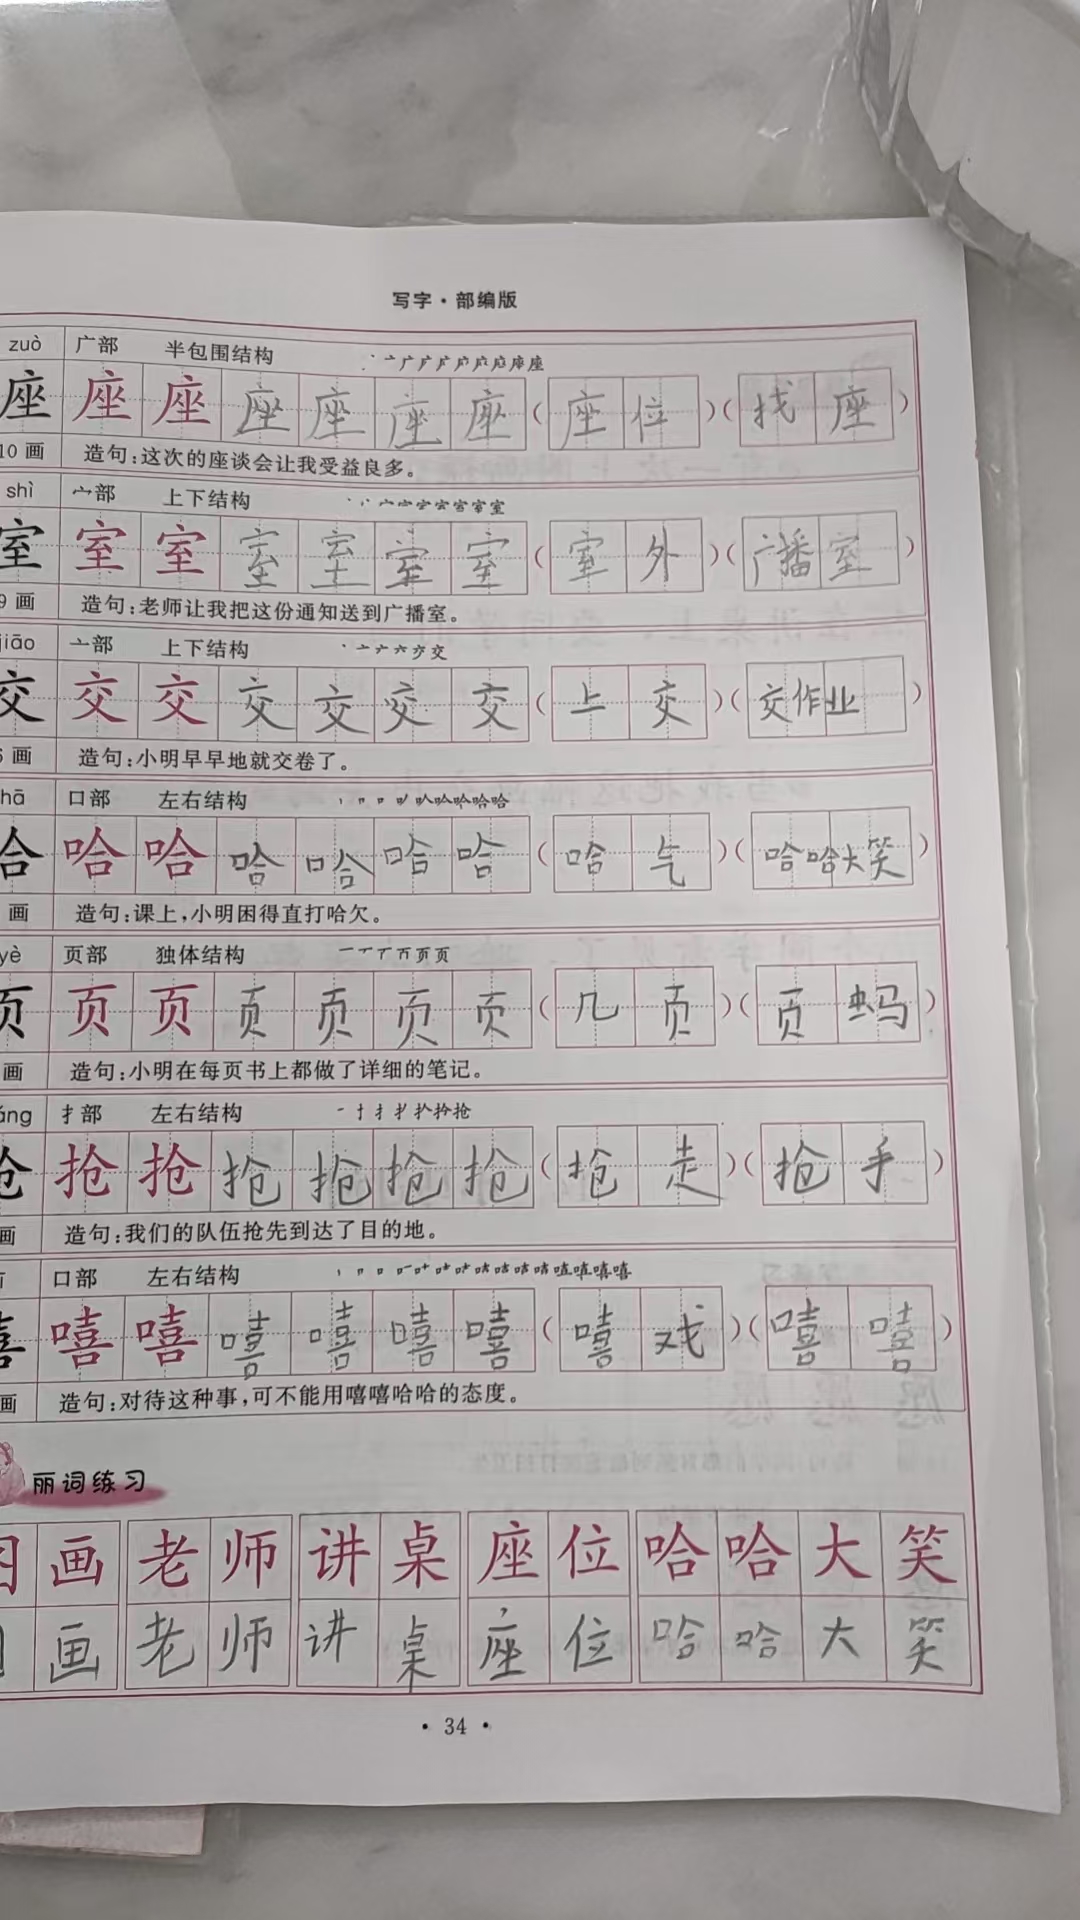 写字·部编版
zuò 广部 半包围结构
座 座 座 座 座 座 座 (座位)(找座)
10画 造句:这次的座谈会让我受益良多。
shì 宀部 上下结构
室 室 室 室 室 室 室 (室外)(广播室)
9画 造句:老师让我把这份通知送到广播室。
jiāo 亠部 上下结构
交 交 交 交 交 交 交 (上交)(交作业)
6画 造句:小明早早地就交卷了。
hā 口部 左右结构
哈 哈 哈 哈 哈 哈 哈 (哈气)(哈哈大笑)
画 造句:课上,小明困得直打哈欠。
yè 页部 独体结构
页 页 页 页 页 页 页 (几页)(页蚂)
画 造句:小明在每页书上都做了详细的笔记。
áng 扌部 左右结构
抢 抢 抢 抢 抢 抢 抢 (抢走)(抢手)
画 造句:我们的队伍抢先到达了目的地。
口部 左右结构
嘻 嘻 嘻 嘻 嘻 嘻 嘻 (嘻戏)(嘻嘻)
画 造句:对待这种事,可不能用嘻嘻哈哈的态度。
丽词练习
画 老师 讲桌 座位 哈哈大笑
画 老师 讲桌 座位 哈哈大笑
·34·